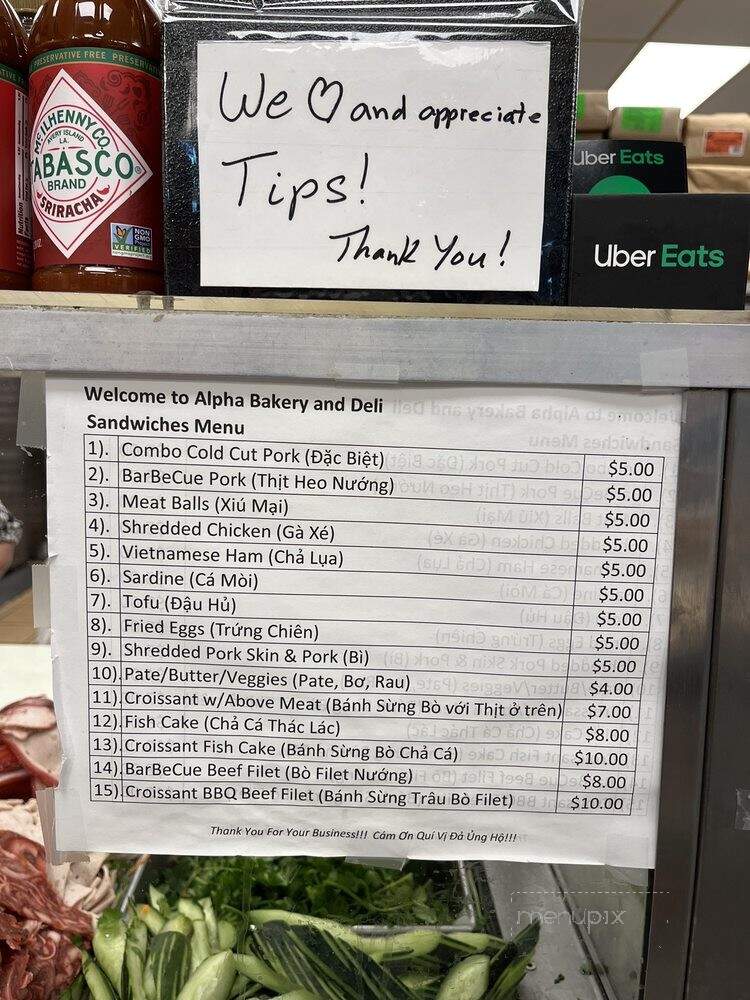 PRESERVATIVE FREE PRESERV
McILHENNY CO.
AVERY ISLAND
LA.
TABASCO®
BRAND
SRIRACHA
NON
GMO
VERIFIED
We ♡ and appreciate
Tips!
Thank You!
Uber Eats
Uber Eats
Welcome to Alpha Bakery and Deli
Sandwiches Menu
1). Combo Cold Cut Pork (Đặc Biệt) $5.00
2). BarBeCue Pork (Thịt Heo Nướng) $5.00
3). Meat Balls (Xiú Mại) $5.00
4). Shredded Chicken (Gà Xé) $5.00
5). Vietnamese Ham (Chả Lụa) $5.00
6). Sardine (Cá Mòi) $5.00
7). Tofu (Đậu Hủ) $5.00
8). Fried Eggs (Trứng Chiên) $5.00
9). Shredded Pork Skin & Pork (Bì) $5.00
10). Pate/Butter/Veggies (Pate, Bơ, Rau) $4.00
11). Croissant w/Above Meat (Bánh Sừng Bò với Thịt ở trên) $7.00
12). Fish Cake (Chả Cá Thác Lác) $8.00
13). Croissant Fish Cake (Bánh Sừng Bò Chả Cá) $10.00
14). BarBeCue Beef Filet (Bò Filet Nướng) $8.00
15). Croissant BBQ Beef Filet (Bánh Sừng Trâu Bò Filet) $10.00
Thank You For Your Business!!! Cám Ơn Quí Vị Đả Ủng Hộ!!!
menupix